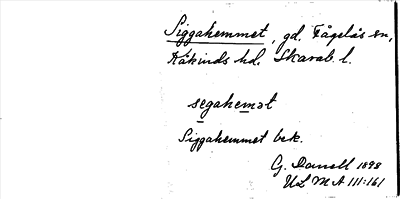 Siggahemmet, gd. Fågelås sn,
Kåkinds hd. Skarab. l.
segahemət
Siggahemmet bek.
G. Danell 1898
ULMA 111:161